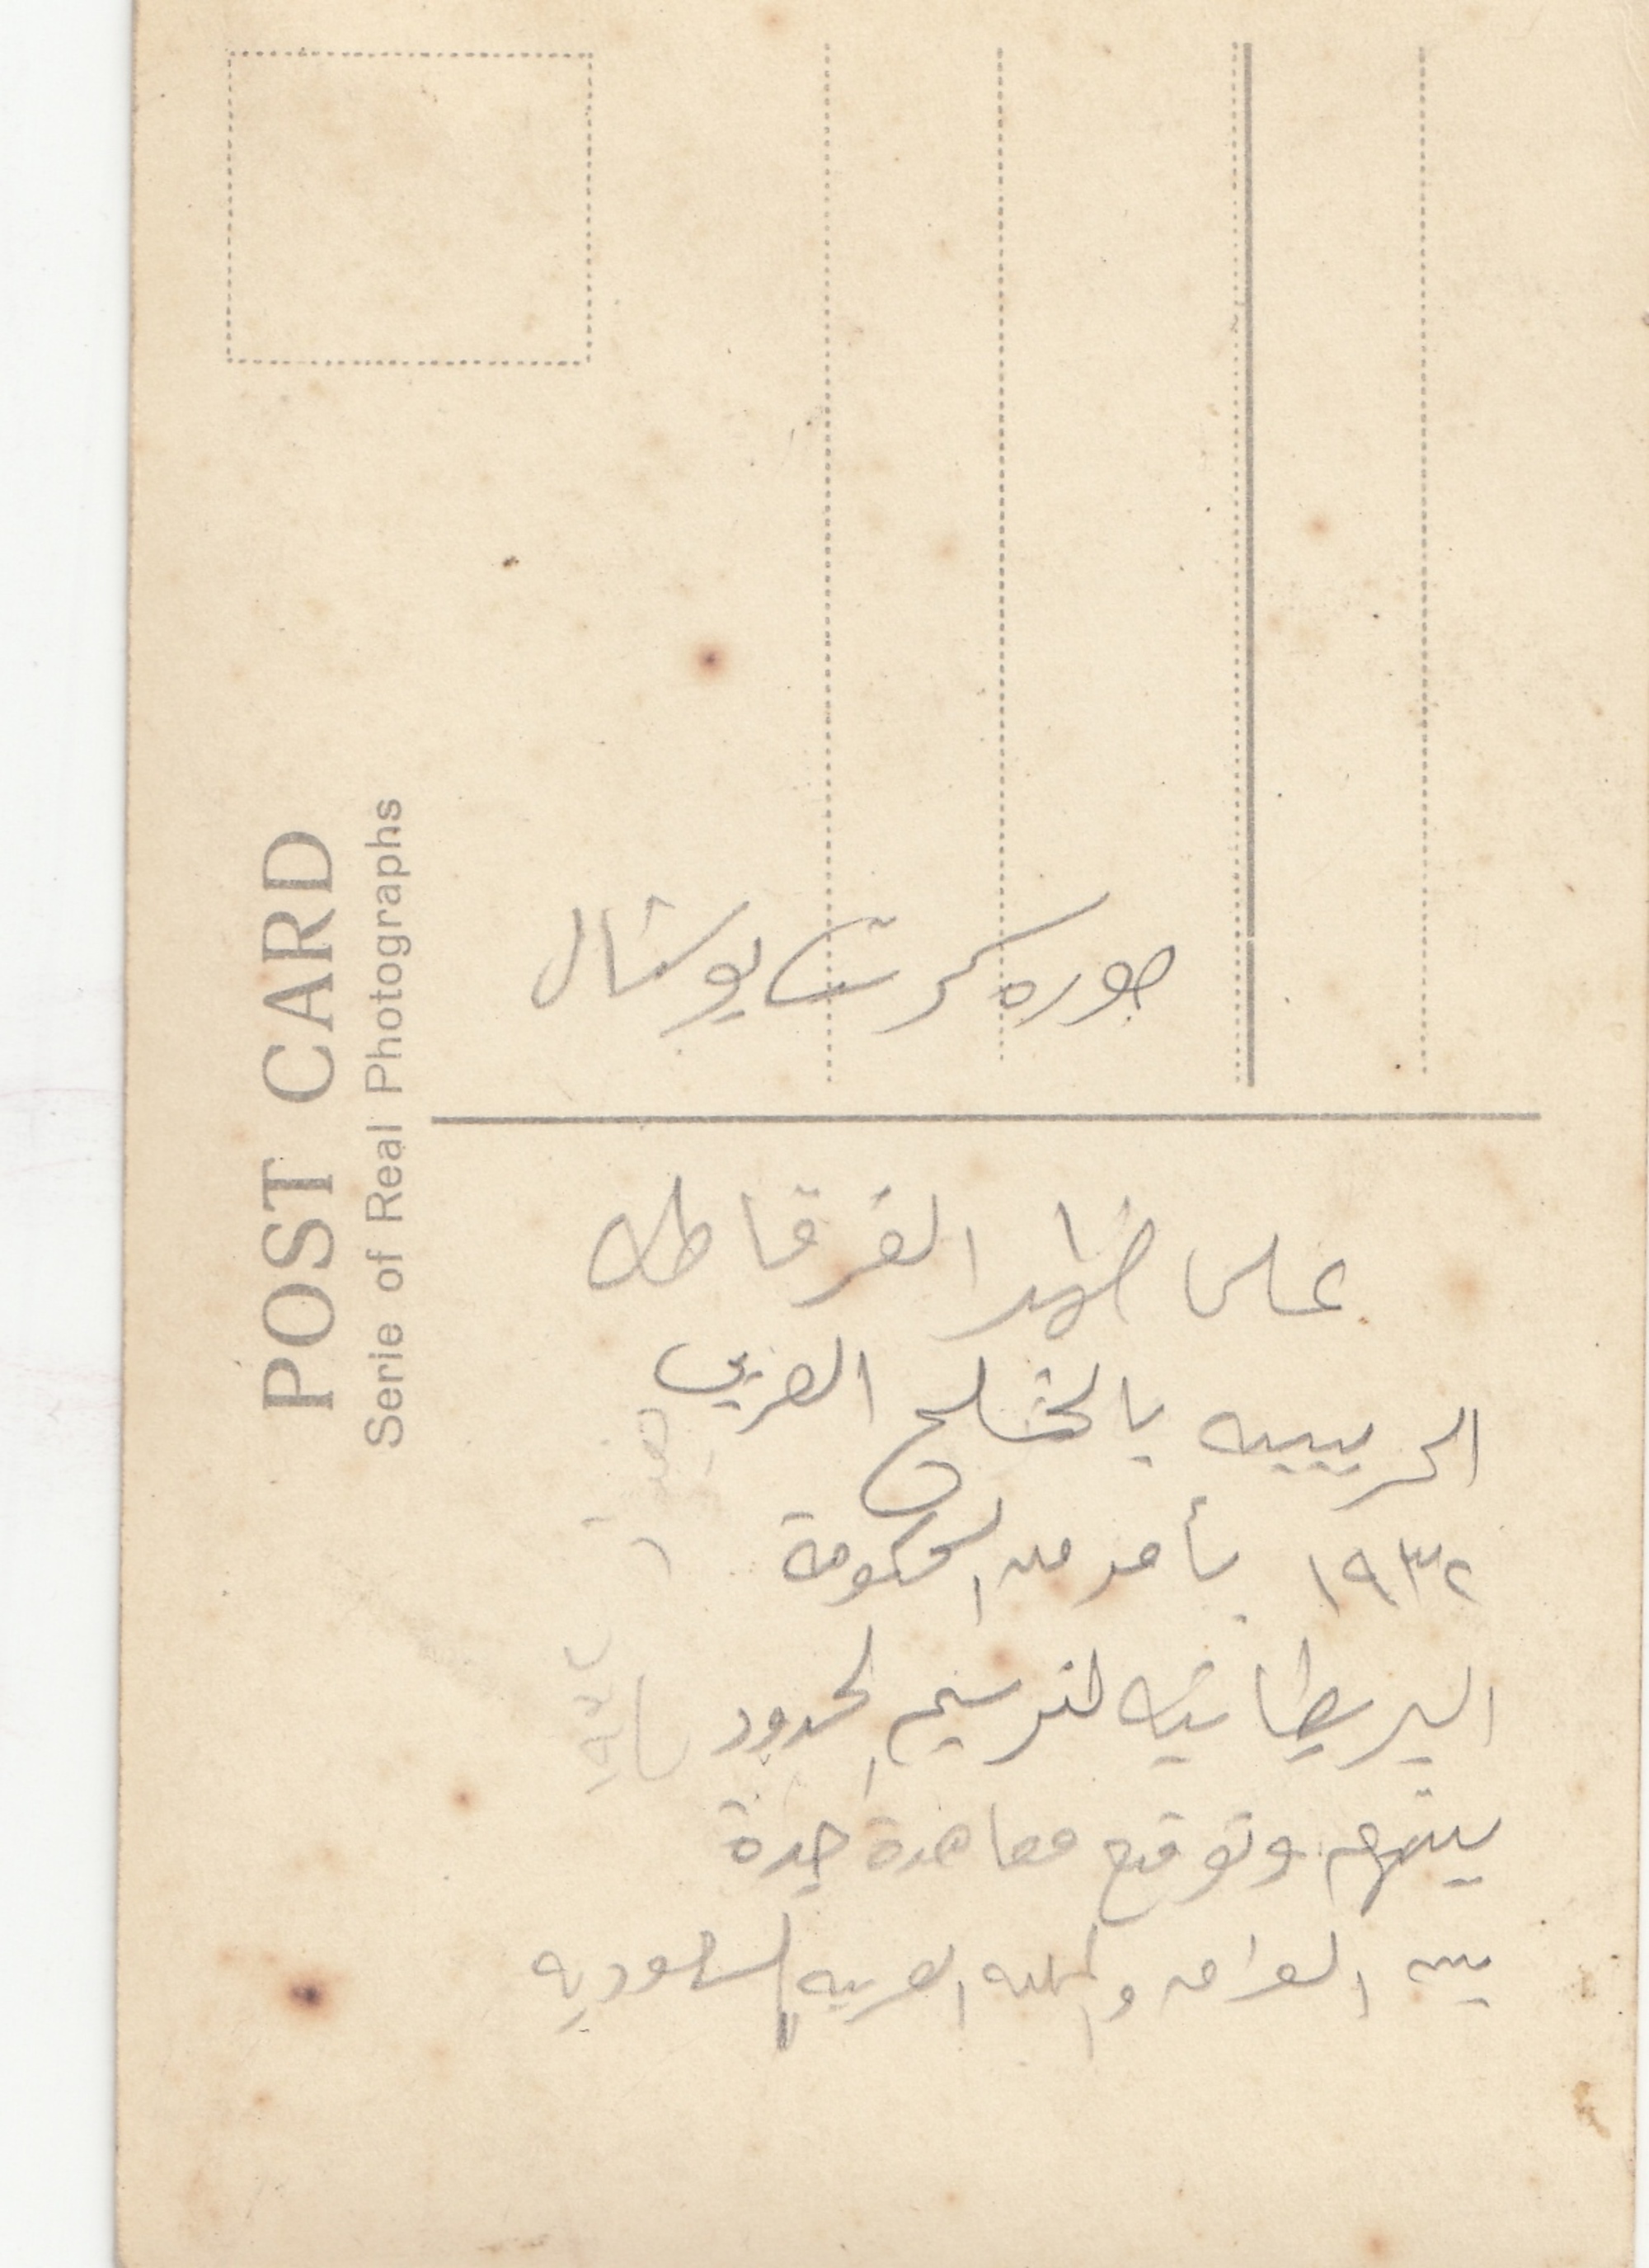 POST CARD
Serie of Real Photographs
صوره كرت بوستال
على ظهر الفرقاطه
الحربيه بالخليج العربي
١٩٣٢ بأمر من الحكومة
البريطانيه لترسيم الحدود
بينهم وتوقيع معاهدة جدة
بين العراق والمملكه العربيه السعوديه